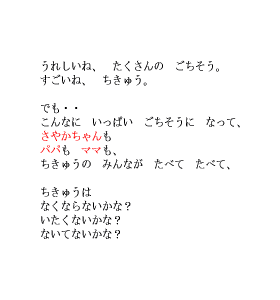 うれしいね、　たくさんの　ごちそう。
すごいね、　ちきゅう。
でも・・
こんなに　いっぱい　ごちそうに　なって、
さやかちゃんも
パパも　ママも、
ちきゅうの　みんなが　たべて　たべて、
ちきゅうは
なくならないかな？
いたくないかな？
ないてないかな？